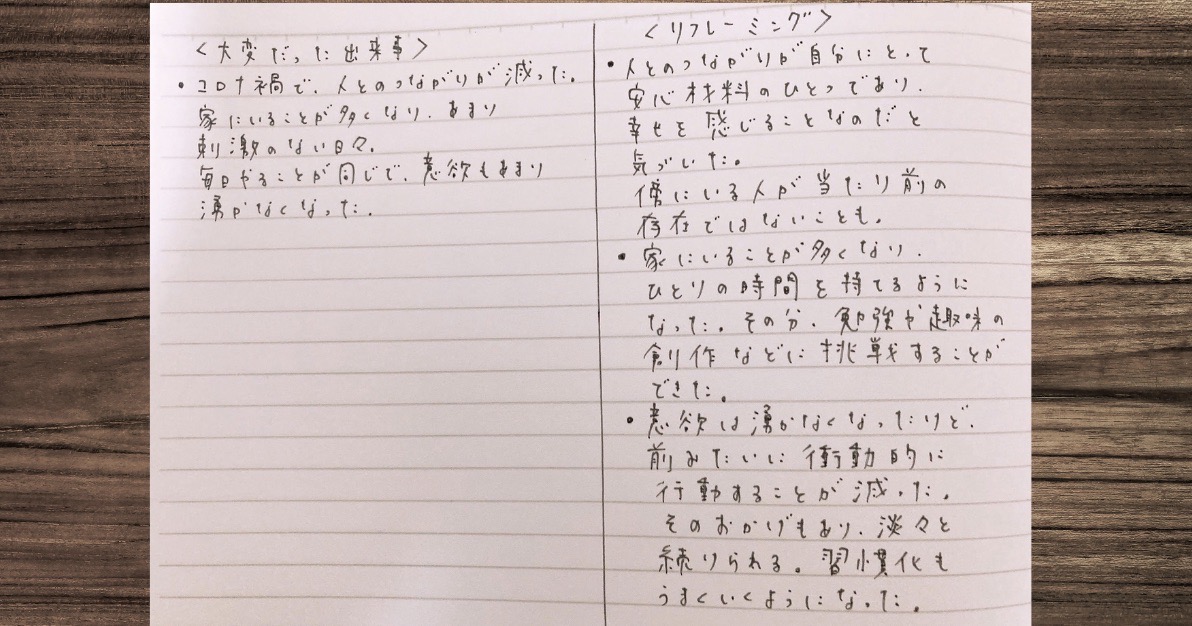 <大変だった出来事>
・コロナ禍で、人とのつながりが減った。
家にいることが多くなり、あまり
刺激のない日々。
毎日やることが同じで、意欲もあまり
湧かなくなった。
<リフレーミング>
・人とのつながりが自分にとって
安心材料のひとつであり、
幸せを感じることなのだと
気づいた。
傍にいる人が当たり前の
存在ではないことも。
・家にいることが多くなり、
ひとりの時間を持てるように
なった。その分、勉強や趣味の
創作などに挑戦することが
できた。
・意欲は湧かなくなったけど、
前みたいに衝動的に
行動することが減った。
そのおかげもあり、淡々と
続けられる。習慣化も
うまくいくようになった。